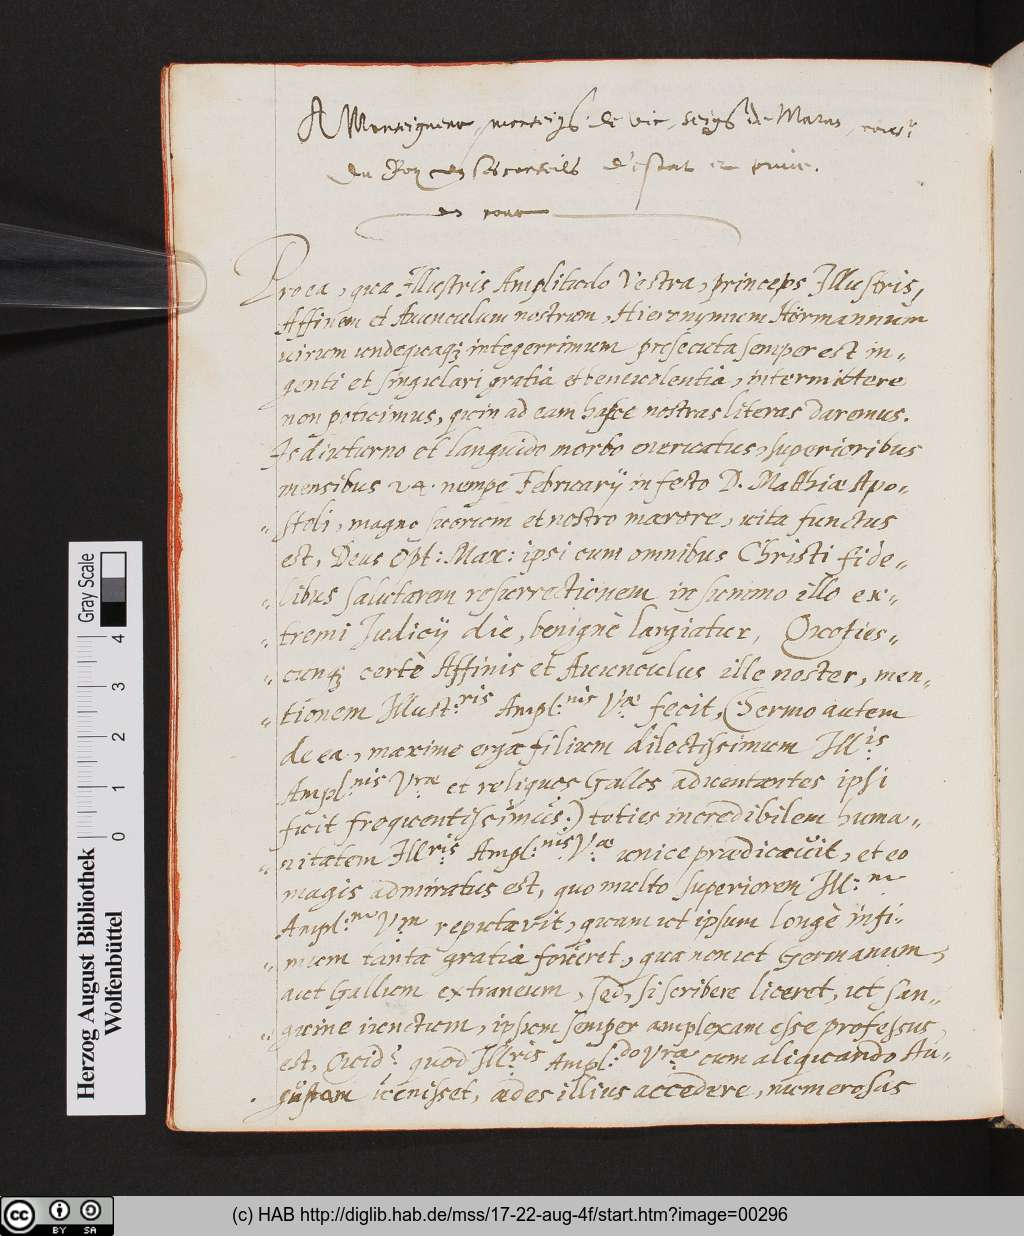 A Monseigneur, monseigr de vic, seigr de Maran, consr
du Roy en ses conseils d'estat et privé.
en cour
Pro ea, qua Illustris Amplitudo Vestra, princeps Illustris,
Affinem et Avunculum nostrum, Hieronymum Hörmannum
uirum undequaq; integerrimum prosecuta semper est in-
genti et singulari gratia et beneuolentia, intermittere
non potuimus, quin ad eam hasce nostras literas daremus.
Is diuturno et languido morbo eneruatus, superioribus
mensibus 24. nempe Februarij in festo D. Matthiæ Apo-
stoli, magno suorum et nostro mærore, uita functus
est, Deus Opt: Max: ipsi cum omnibus Christi fide-
libus salutarem resurrectionem in summo illo ex-
tremi Iudicij die, benignè largiatur, Quoties-
cunq; certè Affinis et Auunculus ille noster, men-
tionem Illust:ris Ampl:nis Vræ fecit, (Sermo autem
de ea, maxime ergæ filium dilectissimum Ill:is
Ampl:nis Vræ et reliquos Gallos aduentantes ipsi
fuit frequentissimus:) toties incredibilem huma-
nitatem Illris Ampl:nis Vræ unice prædicauit, et eo
magis admiratus est, quo multo superiorem Ill:m
Ampl:m Vrm reputavit, quam ut ipsum longè infi-
mum tanta gratia foueret, qua non ut Germanum,
aut Gallum extraneum, sed, si scribere liceret, ut san-
guine iunctum, ipsum semper amplexam esse professus,
est, Quid? quod Ill:ris Ampl:do Vra cum aliquando Au-
gustam uenisset, ædes illius accedere, numerosas
Gray Scale
4
3
2
1
0
Herzog August Bibliothek
Wolfenbüttel
cc BY SA
(c) HAB http://diglib.hab.de/mss/17-22-aug-4f/start.htm?image=00296